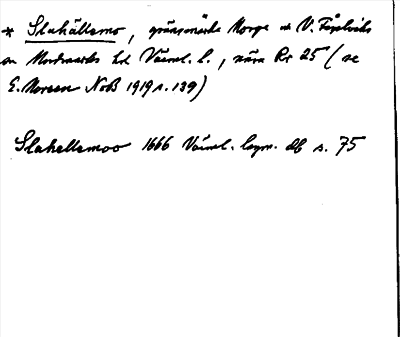 * Slakällemo, gränsmärke Norge o. V. Fågelviks
sn Nordmarks hd Värml. l., nära Rr 25 (se
E. Noreen NoB 1919 s. 139)
Slakellemoo 1666 Värml. legn. db s. 75